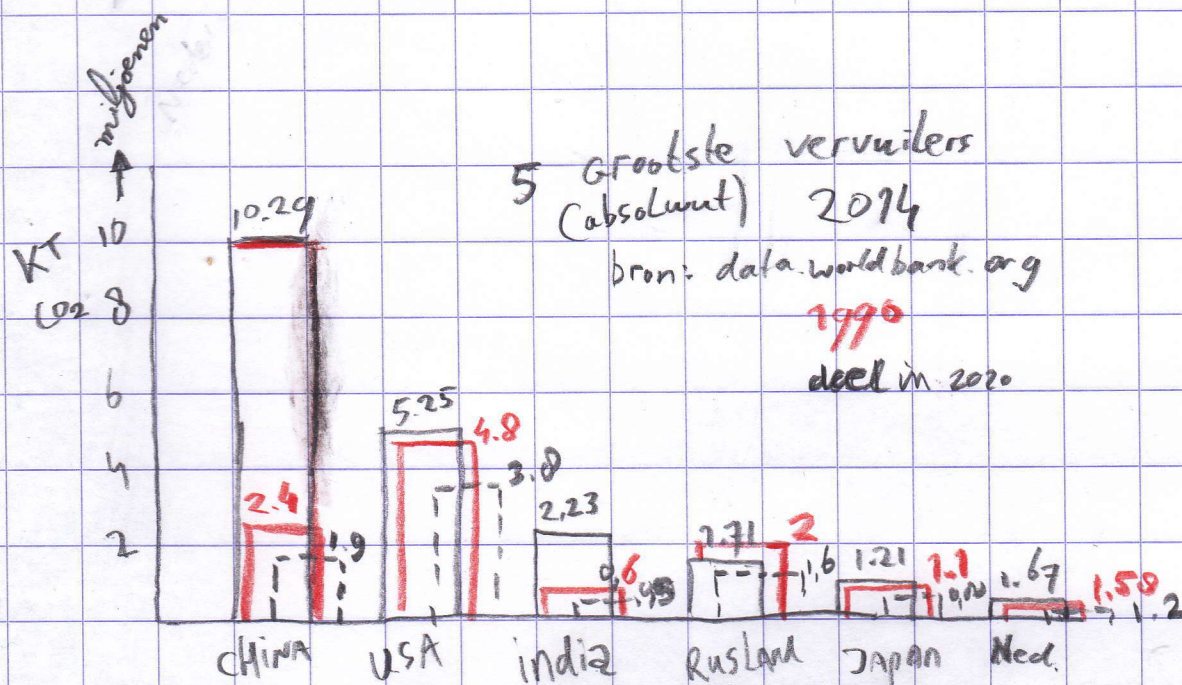 miljoenen
5 Grootste vervuilers
(absoluut) 2014
bron: data.worldbank.org
1990
doel in 2020
KT
CO2
10
8
6
4
2
10.29
2.4
1.9
5.25
4.8
3.8
2,23
0,6
1.71
2
1,6
1.21
1.1
1.67
1.58
1.2
CHINA USA india RUSLAND JAPAN Ned.